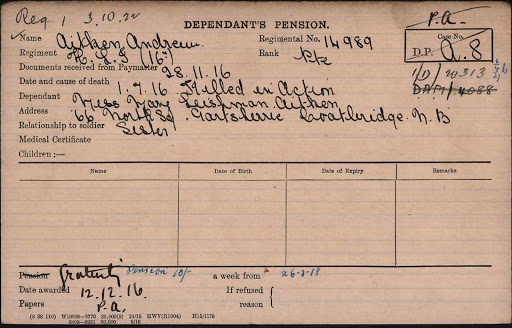 Req. 1 3.10.22
P.A.
DEPENDANT'S PENSION.
Name Aitken Andrew Regimental No. 14989
Case No.
Regiment H.L.I. (16") Rank Pte
D.P. A.8
Documents received from Paymaster 28.11.16
1/D/ 20313
Date and cause of death 1.7.16 Killed in Action
D.A.P.1/4088
Dependant Miss Mary Leishman Aitken
Address 66 North Sq Gartsherrie Coatbridge. N.B
Relationship to soldier Sister
Medical Certificate
Children :—
Name Date of Birth Date of Expiry Remarks
Pension Gratuity Pension 10/- a week from 26-3-18
Date awarded 12.12.16. If refused
Papers P.A. reason
(9 38 110) W10809—3776 10/15 HWV(R1904) H15/1179
9/16